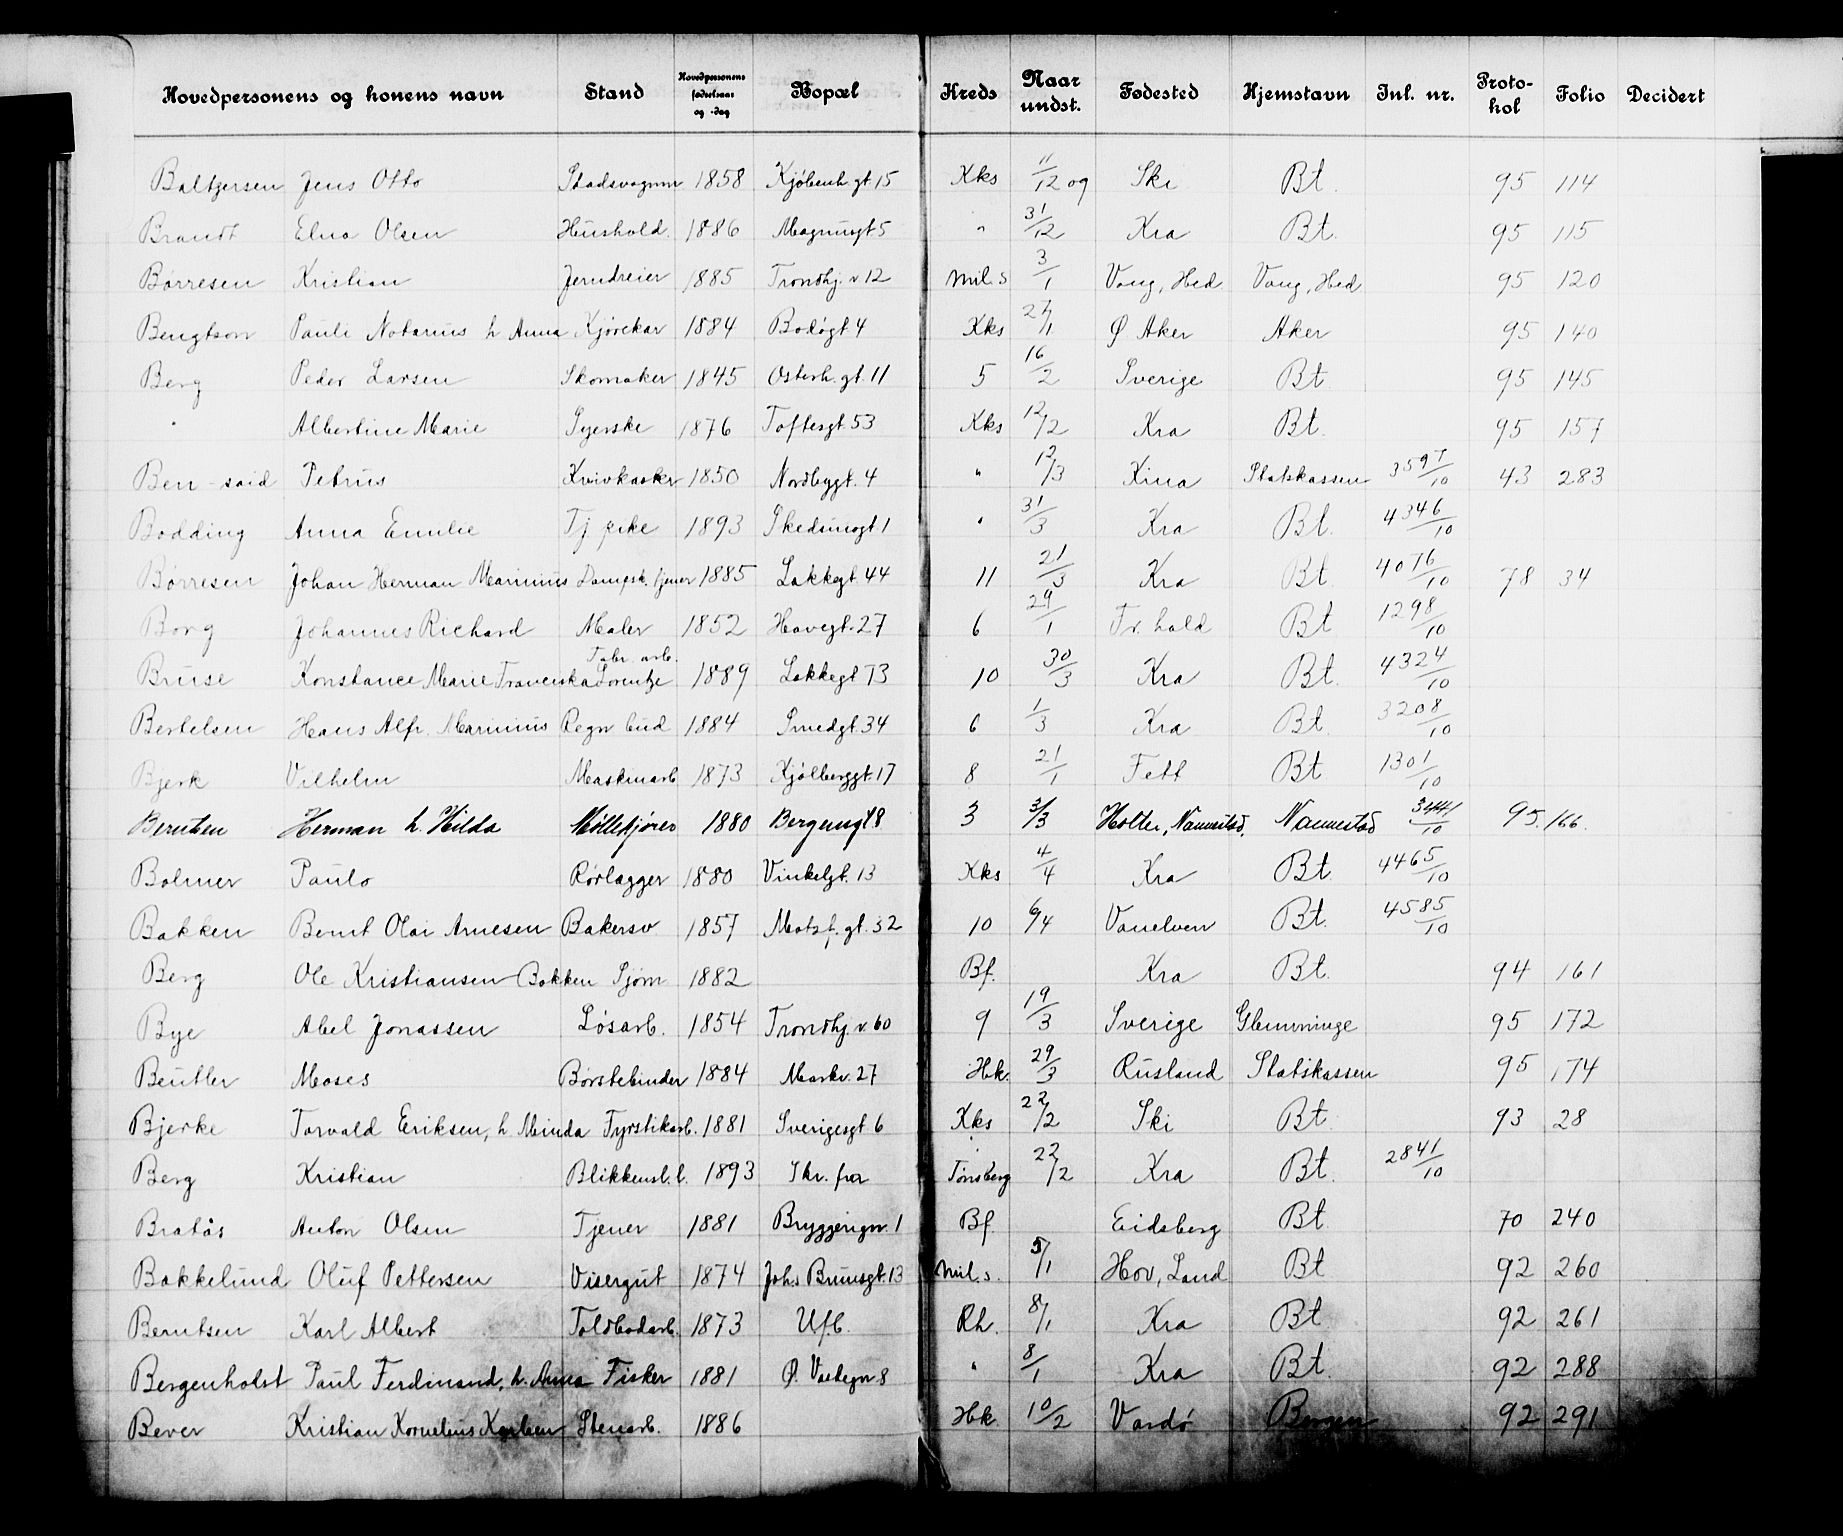 Hovedpersonens og konens navn Stand Hovedpersonens fødselsaar og -dag Bopæl Kreds Naar undst. Fødested Hjemstavn Inl. nr. Proto-kol Folio Decidert
Baltzersen Jens Otto Stadsvognm 1858 Kjøbenh.gt 15 Kks 11/12 og Ski Bt. 95 114
Brandt Elna Olsen Hushold. 1886 Magnusgt 5 " 31/12 Kra Bt. 95 115
Børresen Kristian Jerndreier 1885 Trondhj.v 12 Mil.s 3/1 Vang, Hed. Vang, Hed 95 120
Bengtson Pauli Notarius h Anna Kjørekar 1884 Bodøgt 4 Kks 27/1 Ø Aker Aker 95 140
Berg Peder Larsen Skomaker 1845 Osterh.gt. 11 5 16/2 Sverige Bt. 95 145
" Albertine Marie Syerske 1876 Toftesgt. 53 Kks 12/2 Kra Bt. 95 157
Ben-said Petrus 1850 Nordbygt. 4 " 13/3 Kina Statskassen 3597/10 43 283
Bodding Anna Emilie Tj pike 1893 Skedsmogt 1 " 31/3 Kra Bt. 4346/10
Børresen Johan Herman Marinius Dampsk. tjener 1885 Lakkegt 44 11 21/3 Kra Bt. 4076/10 78 34
Borg Johannes Richard Maler 1852 Havegt. 27 6 29/1 Fr.hald Bt 1298/10
Bruse Konstance Marie Franciska Lorentze Fabr. arb. 1889 Lakkegt 73 10 30/3 Kra Bt. 4324/10
Bertelsen Hans Alfr. Marinius Regn bud 1884 Smedgt. 34 6 1/3 Kra Bt. 3208/10
Bjerk Vilhelm Maskinarb 1873 Kjølberggt. 17 8 21/1 Fett Bt 1301/10
Berntsen Herman h. Hilda Møllekjører 1880 Bergensgt 8 3 3/3 Holter, Nannestad. Nannestad 3441/10 95. 166.
Bolmer Paulo Rørlægger 1880 Vinkelgt. 13 Kks 4/4 Kra Bt. 4465/10
Bakken Bernt Olai Arnesen Bakersv 1857 Motzf.gt. 32 10 6/4 Vanelven Bt. 4585/10
Berg Ole Kristiansen Bakken Sjøm 1882 Bf. Kra Bt. 94 161
Bye Abel Jonassen Løsarb. 1854 Trondhj.v. 60 9 19/3 Sverige Glemminge 95 172
Beutler Moses Børstebinder 1884 Markv. 27 Hk. 29/3 Rusland Statskassen 95 174
Bjerke Torvald Eriksen, h. Minda Fyrstikarb. 1881 Sverigesgt 6 Kks 22/2 Ski Bt. 93 28
Berg Kristian Blikkensl. l. 1893 Skr. fra Tønsberg 22/2 Kra Bt. 2841/10
Bratås Anton Olsen Tjener 1881 Bryggerign. 1 Bf. Eidsberg Bt. 70 240
Bakkelund Oluf Pettersen Visergut 1874 Johs Brunsgt. 13 Mil.s. 5/1 Hov, Land Bt 92 260
Berntsen Karl Albert Toldbodarb. 1873 Ufb. Rh. 8/1 Kra Bt 92 261
Bergenholst Paul Ferdinand, h. Anna Fisker 1881 8 " 8/1 Kra Bt. 92 288
Bever Kristian Kornelius Karlsen Stenarb. 1886 Hk. 10/2 Vardø Bergen 92 291